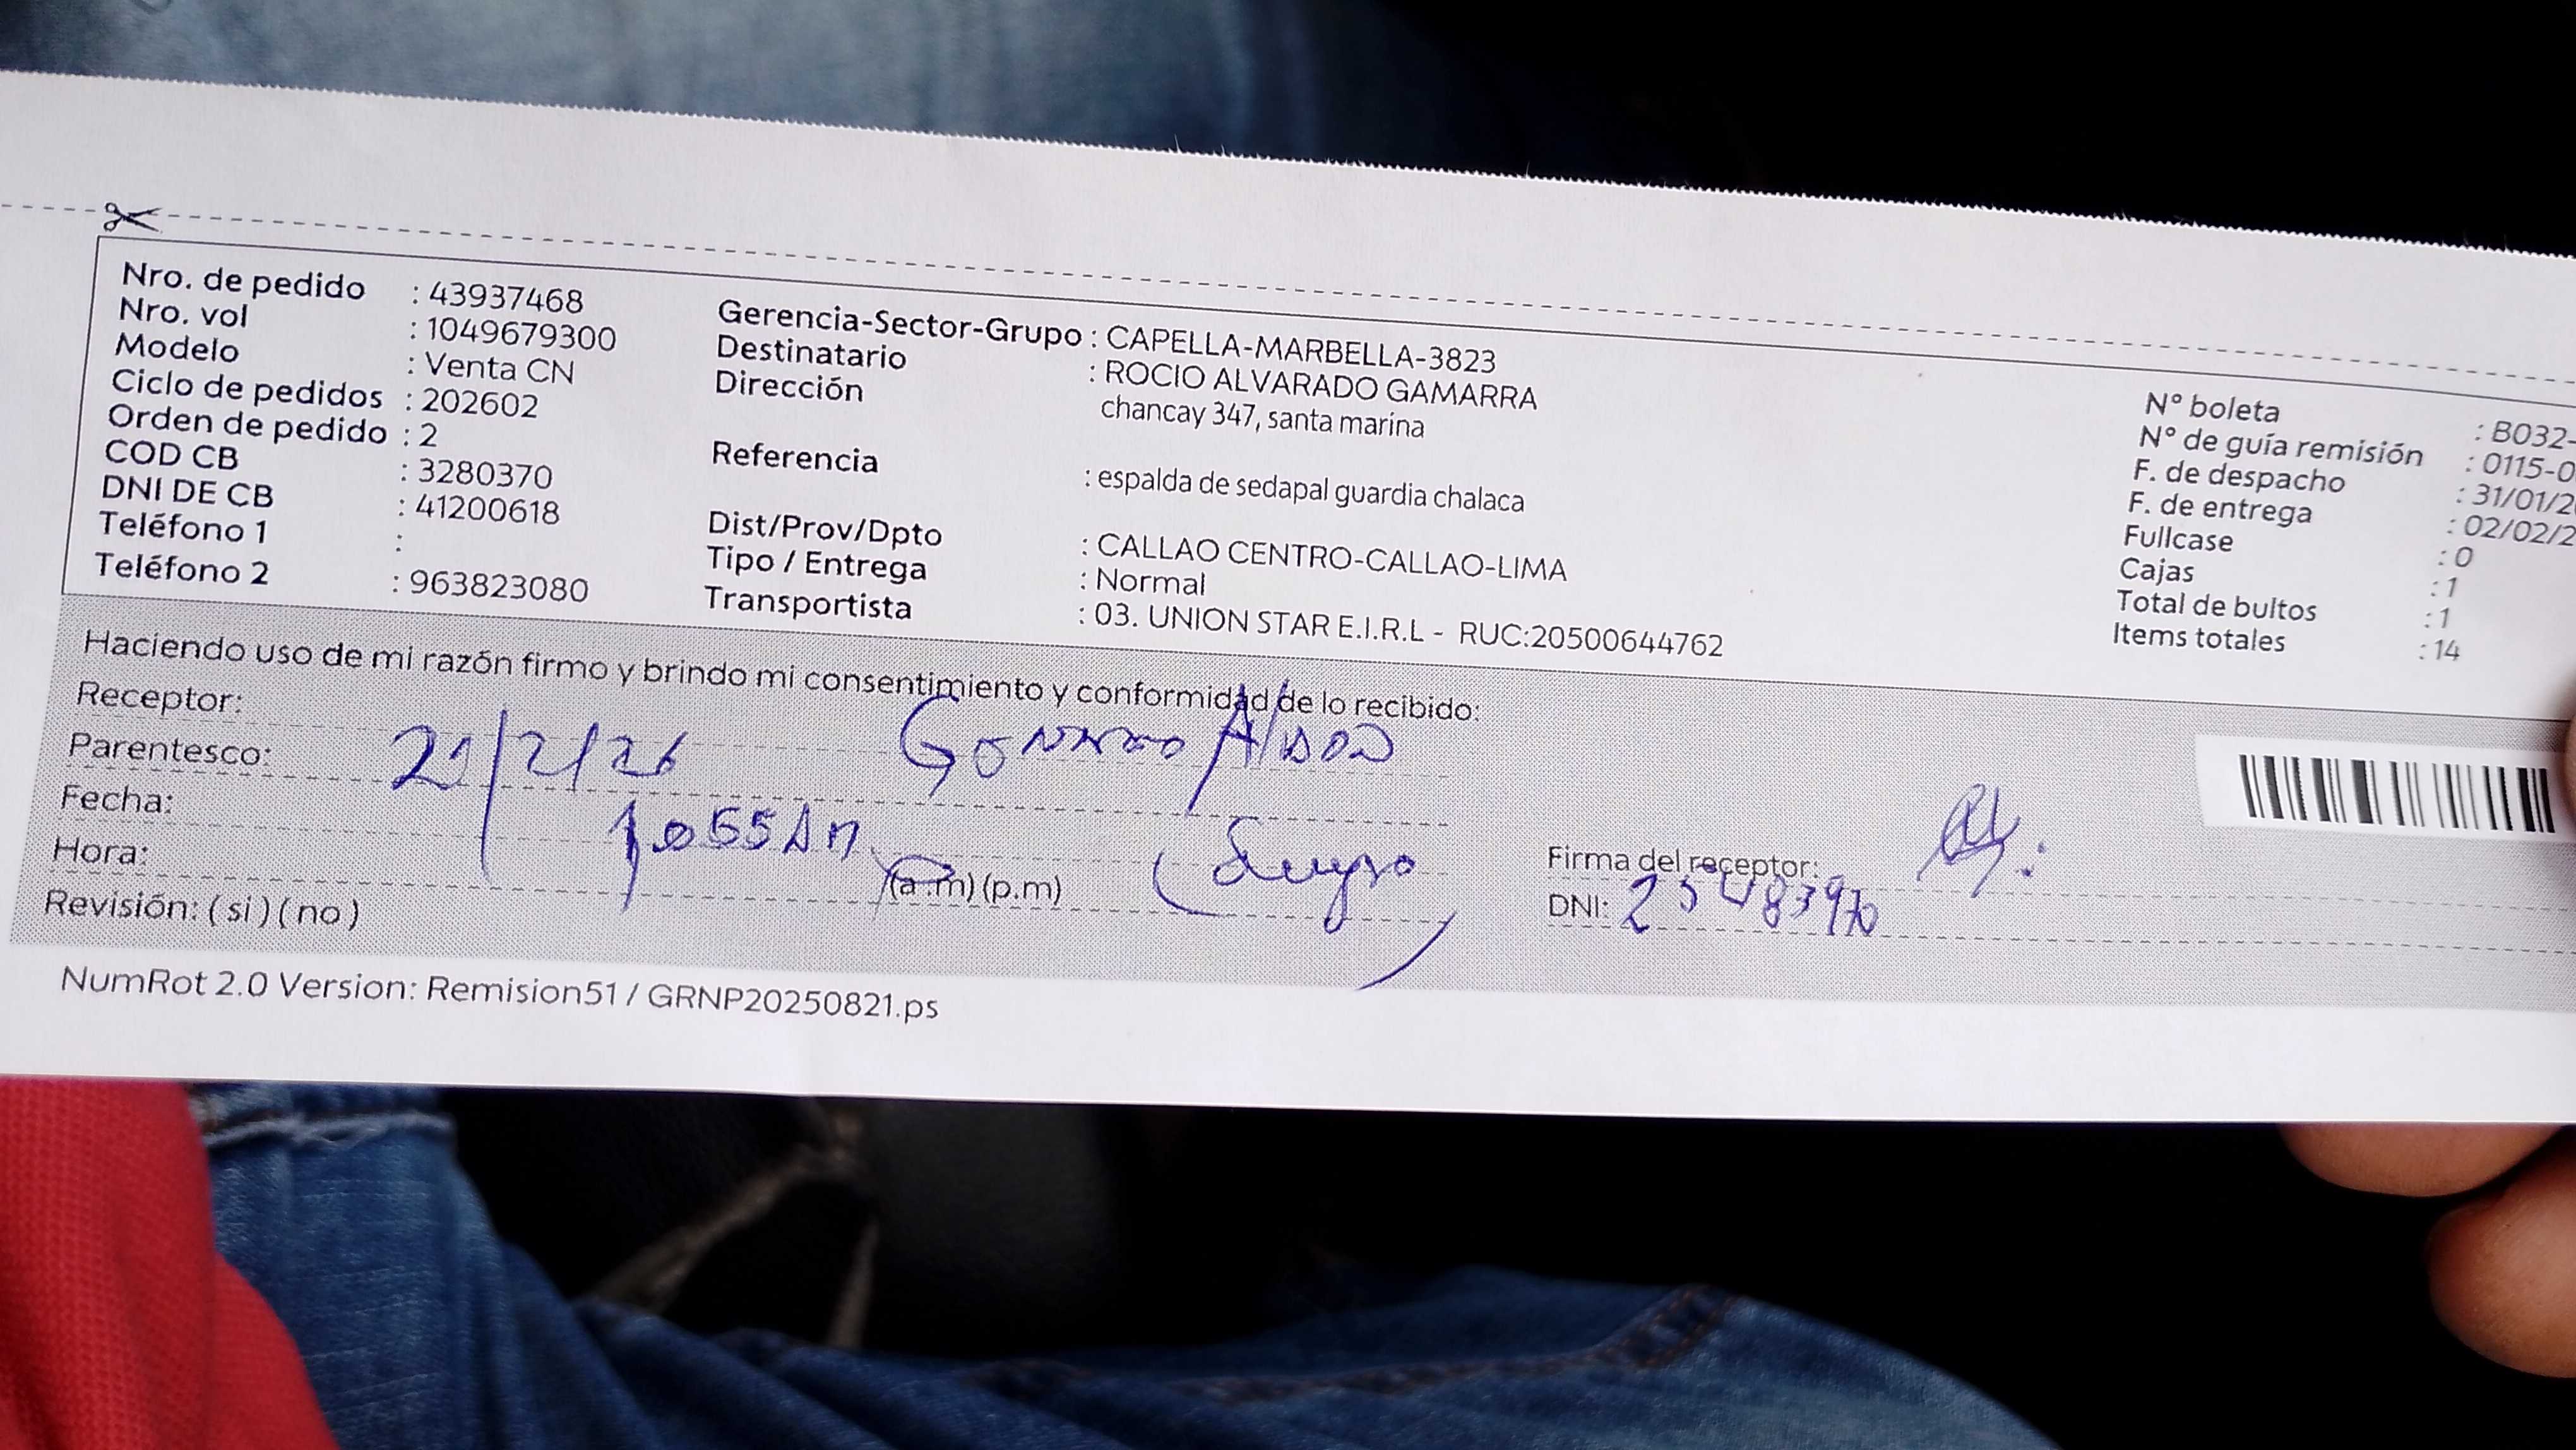 Nro. de pedido : 43937468
Nro. vol : 1049679300
Modelo : Venta CN
Ciclo de pedidos : 202602
Orden de pedido : 2
COD CB : 3280370
DNI DE CB : 41200618
Teléfono 1 :
Teléfono 2 : 963823080
Gerencia-Sector-Grupo : CAPELLA-MARBELLA-3823
Destinatario : ROCIO ALVARADO GAMARRA
Dirección chancay 347, santa marina
Referencia : espalda de sedapal guardia chalaca
Dist/Prov/Dpto : CALLAO CENTRO-CALLAO-LIMA
Tipo / Entrega : Normal
Transportista : 03. UNION STAR E.I.R.L - RUC:20500644762
N° boleta : B032-
N° de guía remisión : 0115-0
F. de despacho : 31/01/2
F. de entrega : 02/02/2
Fullcase : 0
Cajas : 1
Total de bultos : 1
Items totales : 14
Haciendo uso de mi razón firmo y brindo mi consentimiento y conformidad de lo recibido:
Receptor:
Parentesco:
Fecha:
Hora: 1055AM (a.m) (p.m)
Revisión: ( si ) ( no )
(Suegro)
Firma del receptor:
DNI:
NumRot 2.0 Version: Remision51 / GRNP20250821.ps